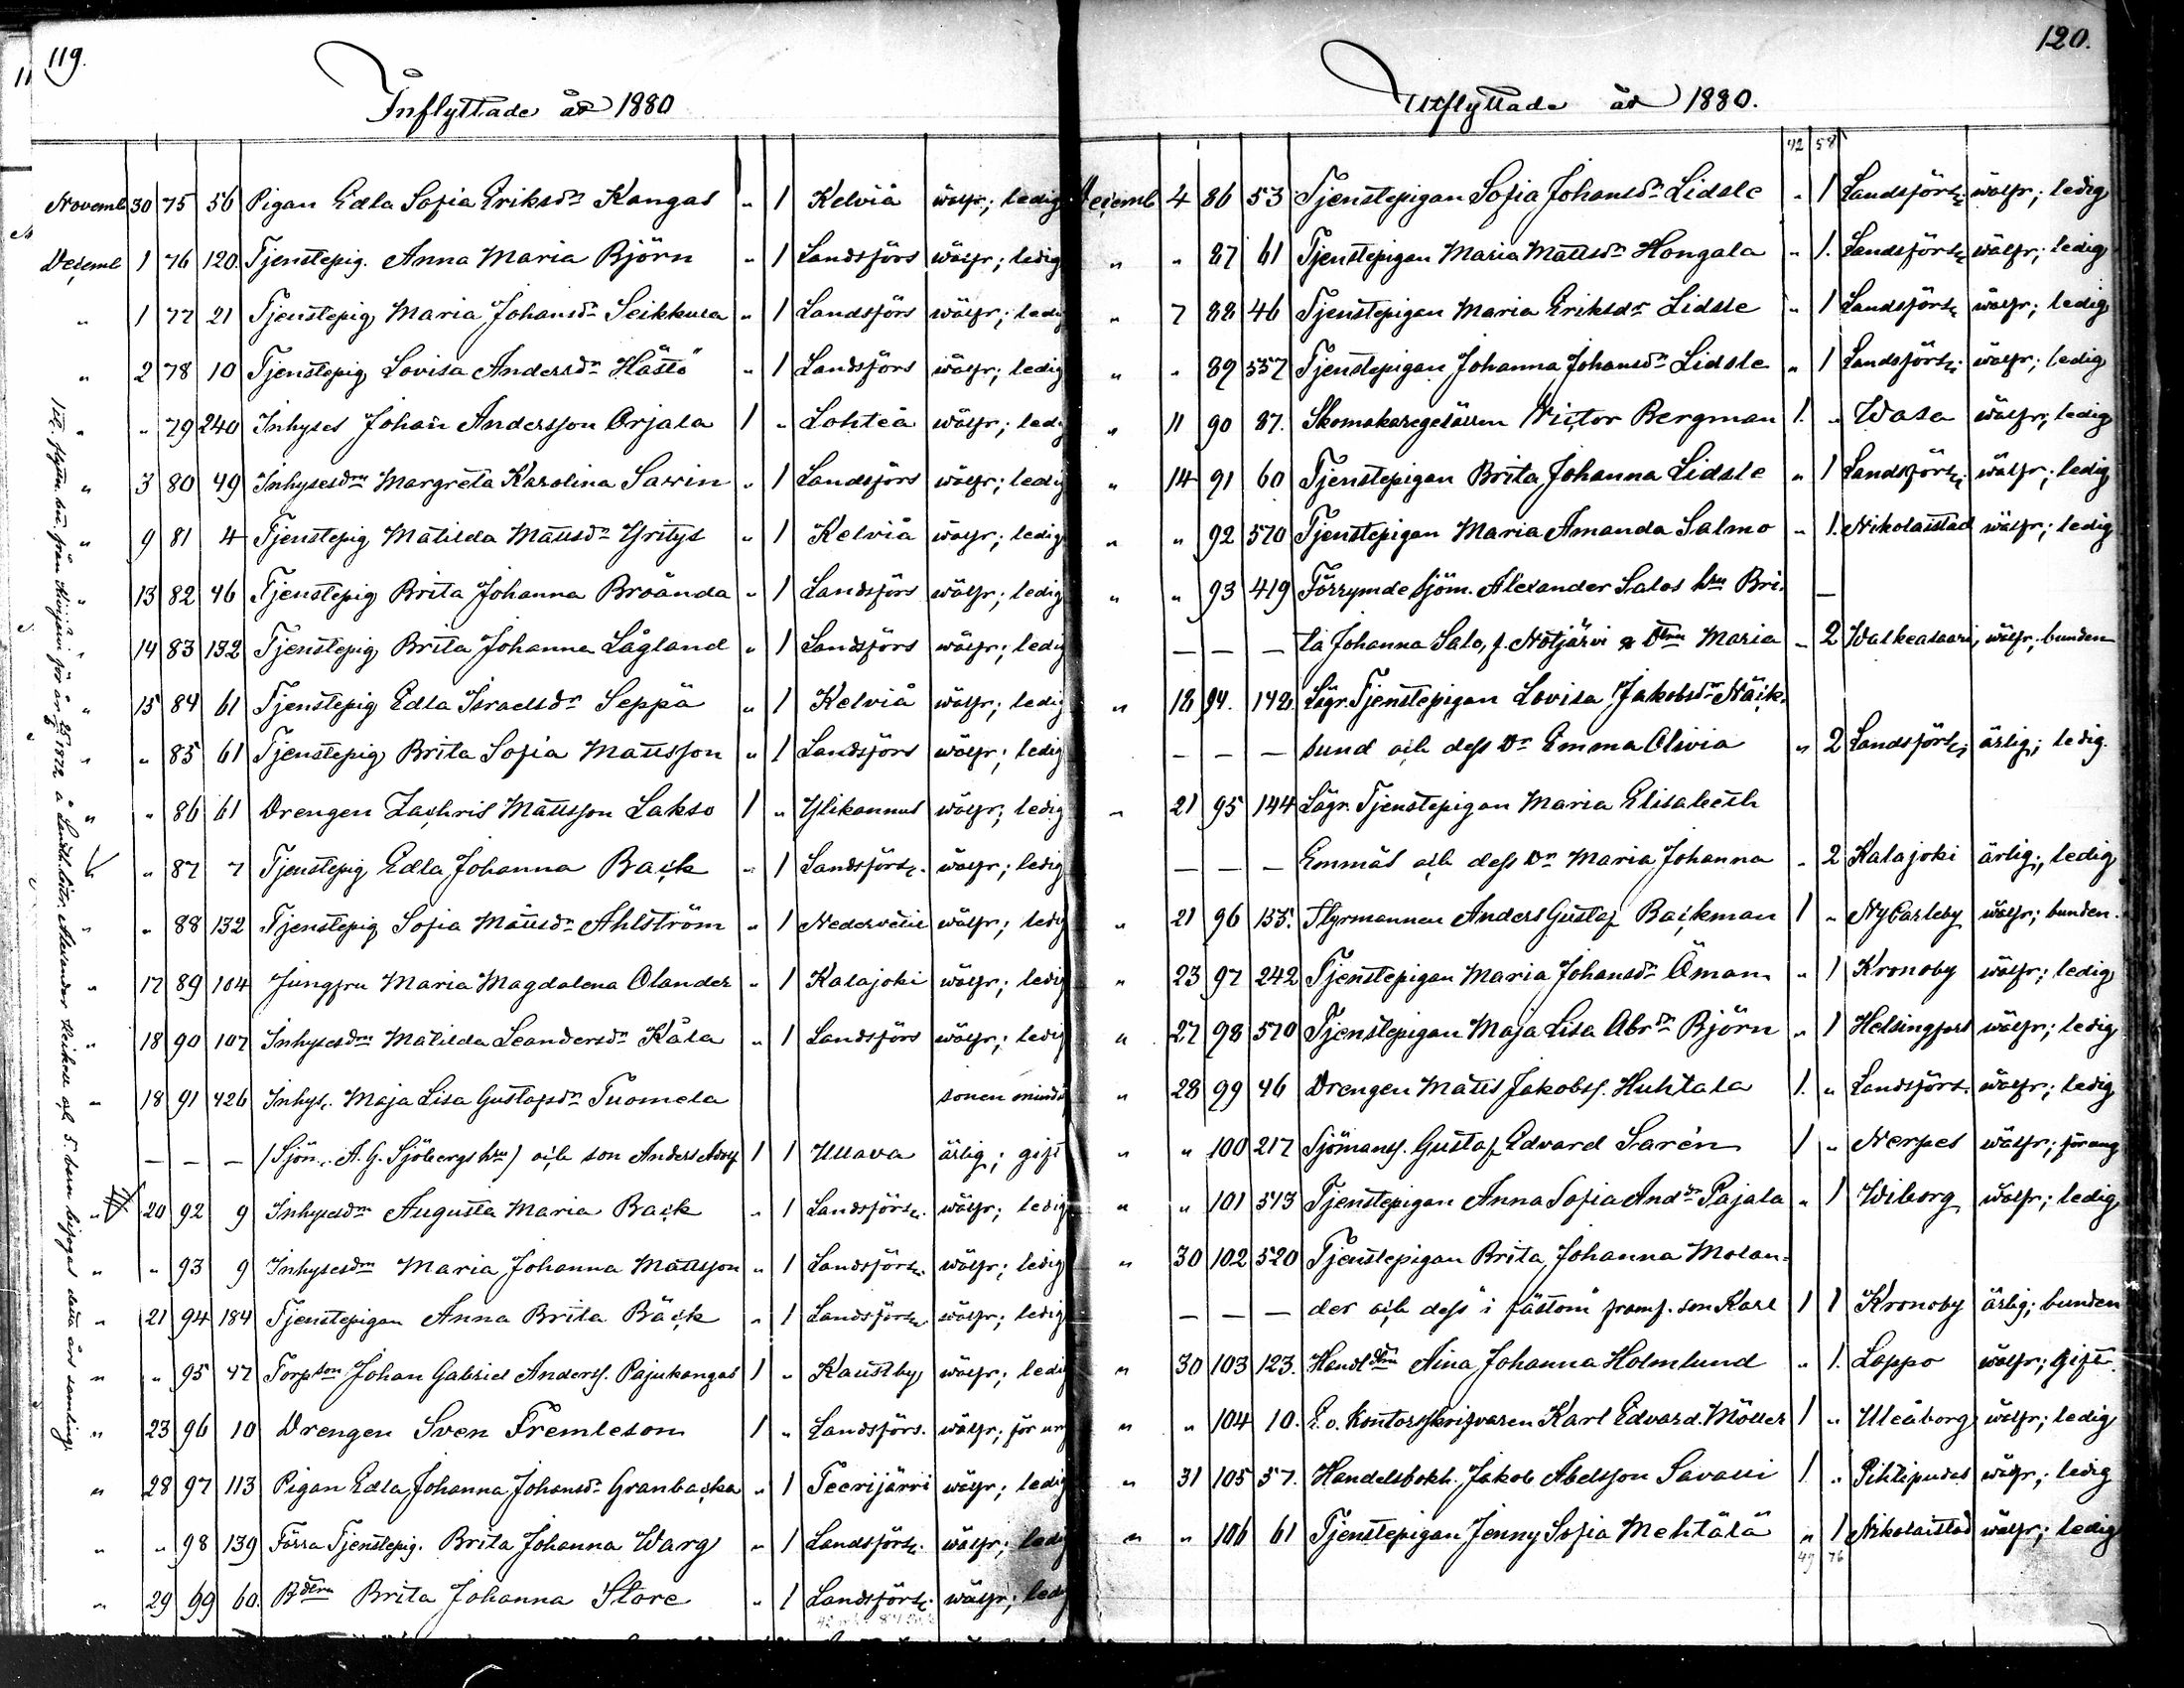 119.
Inflyttade år 1880
Novemb 30 75 56 Pigan Edla Sofia Eriksdr Kangas " 1 Kelviå wälfr; ledig
Decemb 1 76 120. Tjenstepig. Anna Maria Björn " 1 Landsförs wälfr; ledig
" 1 77 21 Tjenstepig Maria Johansdr Seikkula " 1 Landsförs wälfr; ledig
" 2 78 10 Tjenstepig Lovisa Andersdr Håstö " 1 Landsförs wälfr; ledig
" " 79 240 Inhyses Johan Andersson Orjala 1 " Lohteå wälfr; ledig
" 3 80 49 Inhysesdrn Margreta Karolina Sarin " 1 Landsförs wälfr; ledig
" 9 81 4 Tjenstepig Matilda Mattsdr Yritys " 1 Kelviå wälfr; ledig
" 13 82 46 Tjenstepig Brita Johanna Broända " 1 Landsförs wälfr; ledig
" 14 83 132 Tjenstepig Brita Johanna Lågland " 1 Landsförs wälfr; ledig
" 15 84 61 Tjenstepig Edla Israelsdr Seppä " 1 Kelviå wälfr; ledig
" " 85 61 Tjenstepig Brita Sofia Mattsson " 1 Landsförs wälfr; ledig
" " 86 61 Drengen Zachris Mattsson Lakso 1 " Ylikannus wälfr; ledig
" " 87 7 Tjenstepig Edla Johanna Back " 1 Landsförs. wälfr; ledig
" " 88 132 Tjenstepig Sofia Mattsdr Ahlström " 1 Nedervetil wälfr; ledig
" 17 89 104 Jungfru Maria Magdalena Olander " 1 Kalajoki wälfr; ledig
" 18 90 107 Inhysesdrn Matilda Leandersdr Kåla " 1 Landsförs wälfr; ledig
" 18 91 426 Inhys. Maja Lisa Gustafsdr Tuomela sonen
— — — (Sjöm. A. G. Sjöbergs hru) och son Anders Adolf 1 1 Ullava ärlig; gift
" 20 92 9 Inhysesdrn Augusta Maria Back " 1 Landsförs. wälfr; ledig
" " 93 9 Inhysesdrn Maria Johanna Mattsson " 1 Landsförs. wälfr; ledig
" 21 94 184 Tjenstepigan Anna Brita Bäck " 1 Landsförs wälfr; ledig
" " 95 47 Torpson Johan Gabriel Anderss. Pajukangas 1 " Kaustby wälfr; ledig
" 23 96 10 Drengen Sven Fremleson 1 " Landsförs. wälfr; för ung
" 28 97 113 Pigan Edla Johanna Johansdr Granbacka " 1 Teerijärvi wälfr; ledig
" " 98 139 Förra Tjenstepig. Brita Johanna Warg " 1 Landsförs. wälfr; ledig
" 29 99 60. Bdtrn Brita Johanna Store " 1 Landsförs. wälfr; ledig
120.
Utflyttade år 1880.
42 58
Decemb 4 86 53 Tjenstepigan Sofia Johansdr Lidsle " 1 Landsförs. wälfr; ledig
" " 87 61 Tjenstepigan Maria Mattsdr Hongala " 1. Landsförs. wälfr; ledig
" 7 88 46 Tjenstepigan Maria Eriksdr Lidsle " 1 Landsförs. wälfr; ledig
" " 89 557 Tjenstepigan Johanna Johansdr Lidsle " 1 Landsförs. wälfr; ledig
" 11 90 87. Skomakaregesällen Victor Bergman 1. " Wasa wälfr; ledig
" 14 91 60 Tjenstepigan Brita Johanna Lidsle " 1 Landsförs. wälfr; ledig
" " 92 570 Tjenstepigan Maria Amanda Salmo " 1. Nikolaistad wälfr; ledig
" " 93 419 Förrymde sjöm. Alexander Salos hru Bri- —
— — — ta Johanna Salo, f. Notjärvi & dtrn Maria " 2 Walkeasaari wälfr; bunden
" 18 94. 142 Lägr. Tjenstepigan Lovisa Jakobsdr Näck-
— — — sund och dess dr Emma Olivia " 2 Landsförs; ärlig; ledig.
" 21 95 144 Lägr. Tjenstepigan Maria Elisabeth
— — — Emmäs och dess dr Maria Johanna " 2 Kalajoki ärlig; ledig
" 21 96 155. Styrmannen Anders Gustaf Backman 1 " NyCarleby wälfr; bunden.
" 23 97 242 Tjenstepigan Maria Johansdr Öman " 1 Kronoby wälfr; ledig
" 27 98 570 Tjenstepigan Maja Lisa Abrdr Björn " 1 Helsingfors wälfr; ledig
" 28 99 46 Drengen Matts Jakobss. Huhtala 1. " Landsförs. wälfr; ledig
" " 100 217 Sjömans. Gustaf Edvard Sarén 1 " Nerpes wälfr; för ung
" " 101 513 Tjenstepigan Anna Sofia Anddr Pajala " 1 Wiborg wälfr; ledig
" 30 102 520 Tjenstepigan Brita Johanna Molan-
— — — der och dess "i fästom" framf. son Karl 1 1 Kronoby ärlig; bunden
" 30 103 123. Handldtrn Aina Johanna Holmlund " 1. Lappo wälfr; gift.
" " 104 10. E. o. Kontorsskrifvaren Karl Edvard Möller 1 " Uleåborg wälfr; ledig
" 31 105 57. Handelsbokh. Jakob Abelsson Savalli 1 " Pihtipudas wälfr; ledig
" " 106 61 Tjenstepigan Jenny Sofia Mehtälä " 1 Nikolaistad wälfr; ledig
49 76